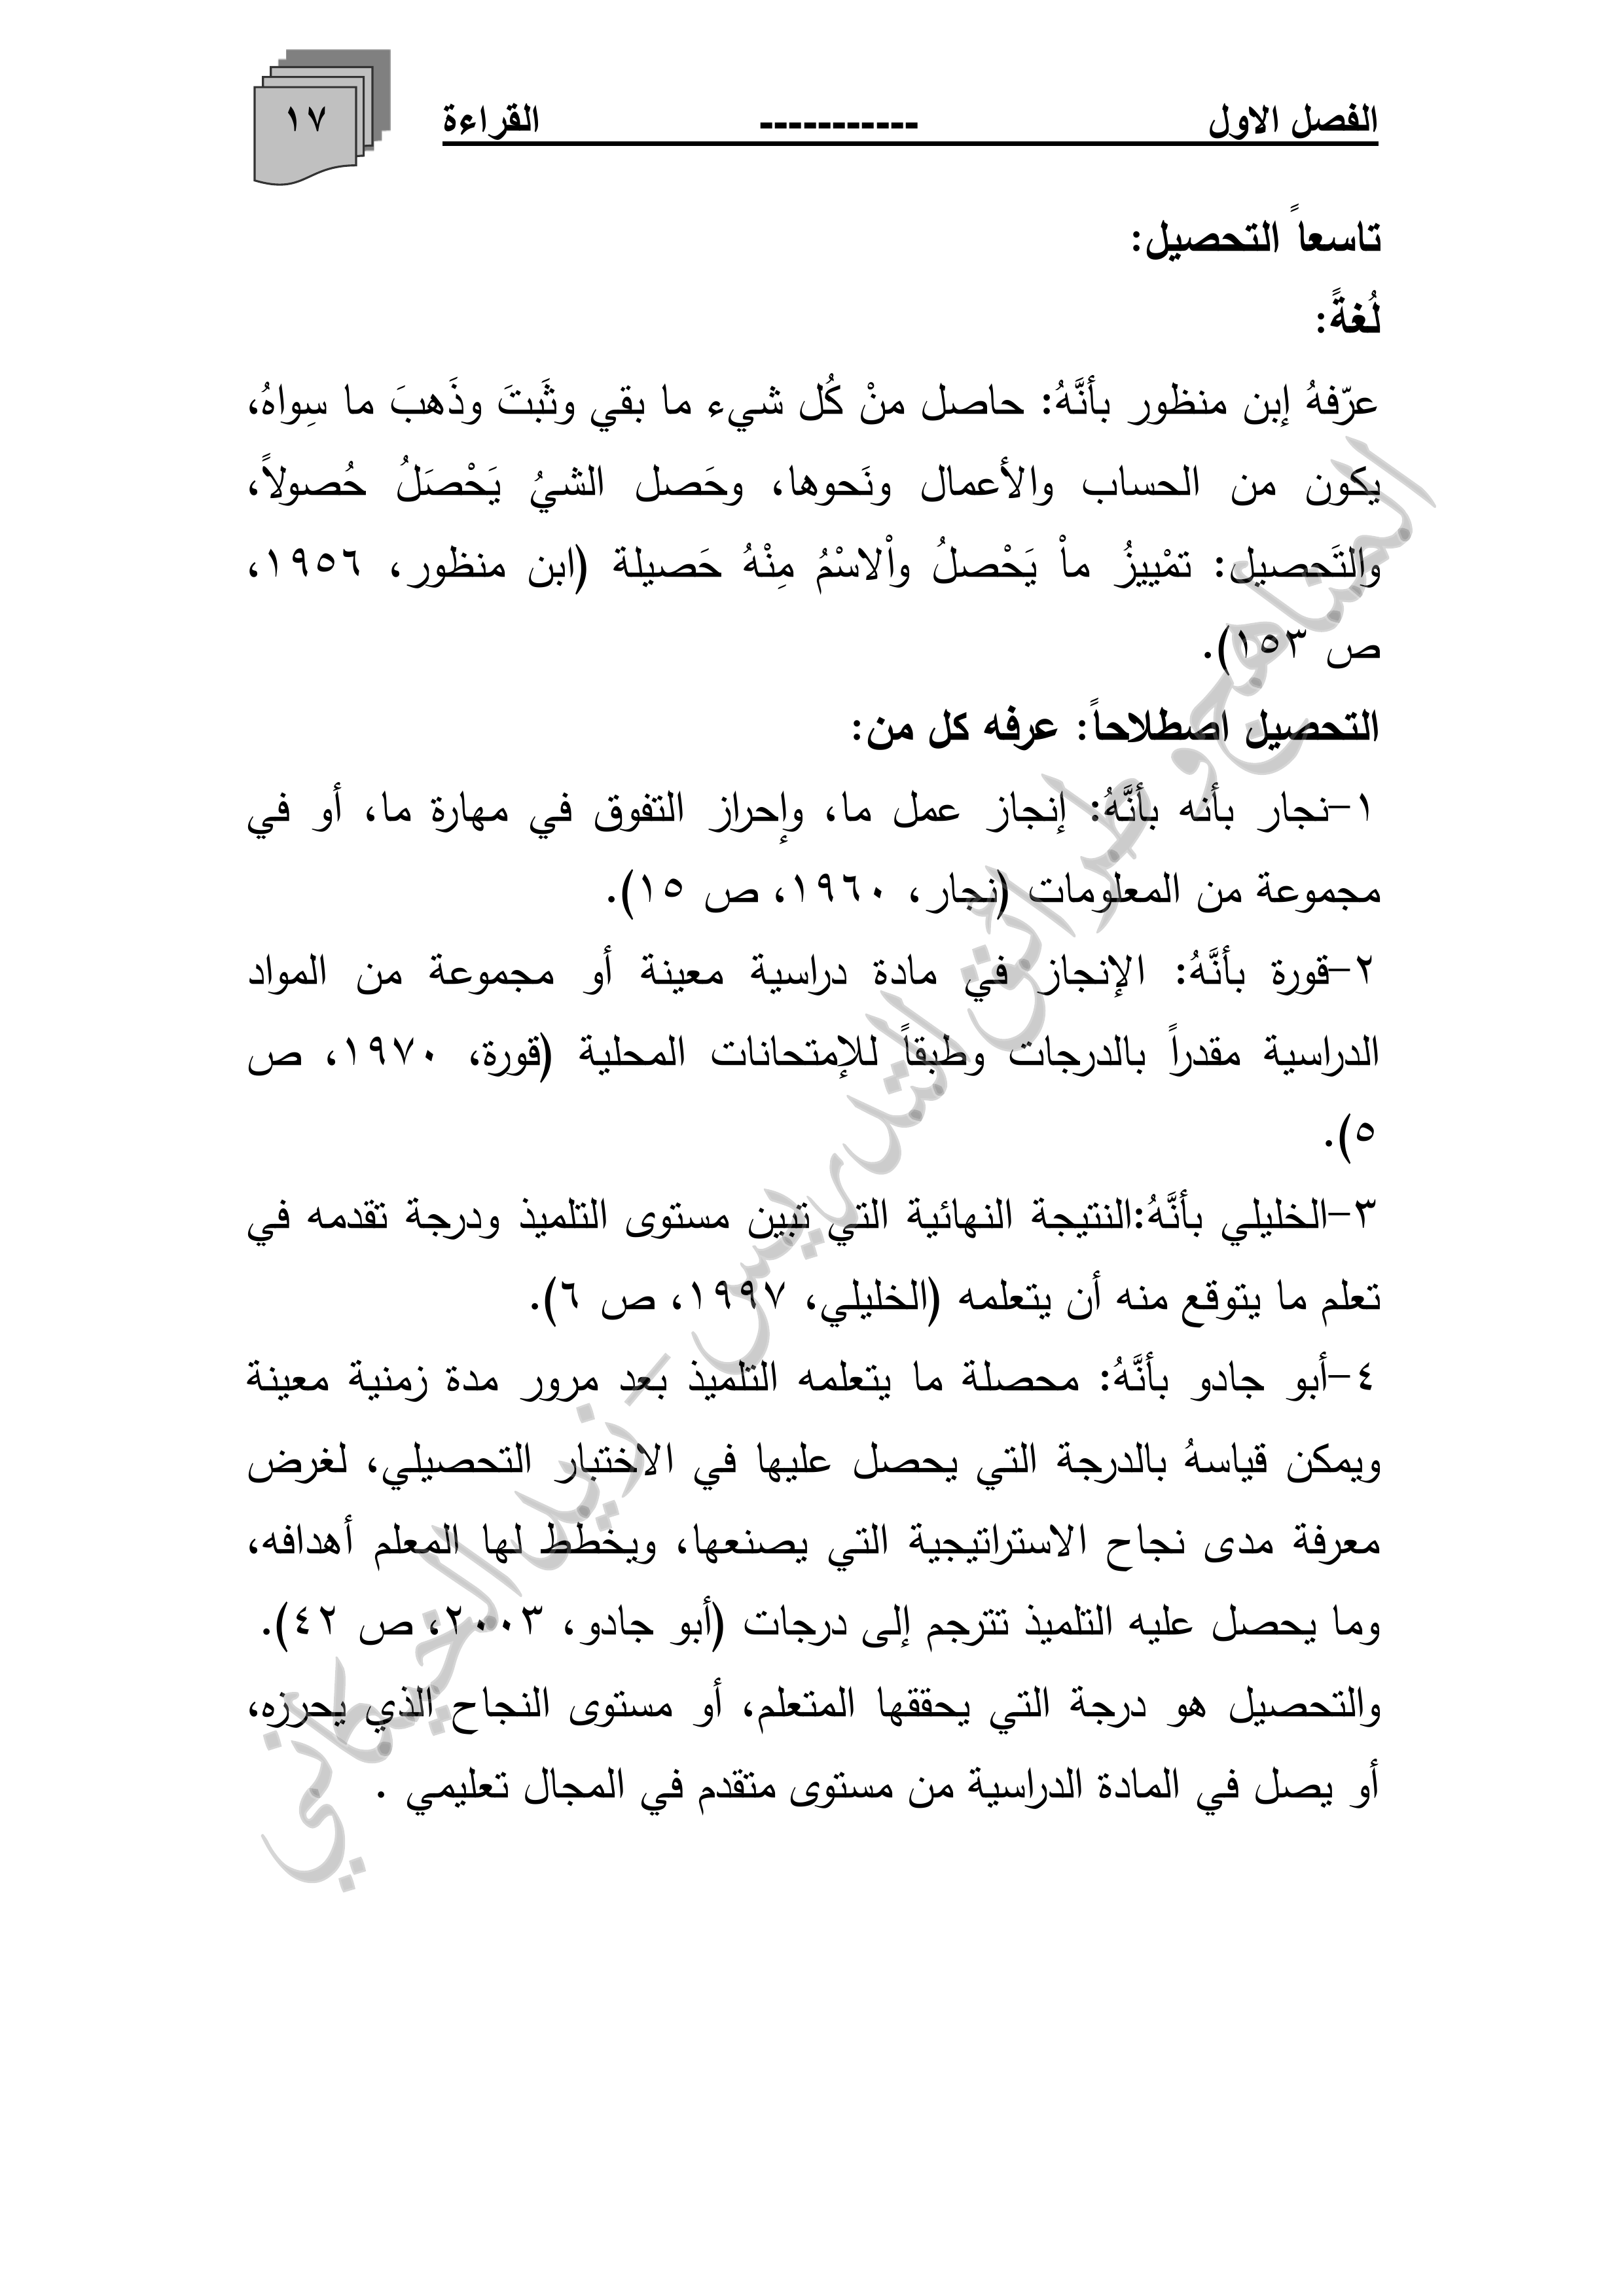 الفصل الاول ----------- القراءة
١٧
تاسعاً التحصيل:
لُغةً:
عرّفهُ إبن منظور بأنَّهُ: حاصل منْ كُل شيء ما بقي وثَبتَ وذَهبَ ما سِواهُ،
يكون من الحساب والأعمال ونَحوها، وحَصل الشيُ يَحْصَلُ حُصولاً،
والتَحصيل: تمْييزُ ماْ يَحْصلُ واْلاسْمُ مِنْهُ حَصيلة (ابن منظور، ١٩٥٦،
ص ١٥٣).
التحصيل اصطلاحاً: عرفه كل من:
١-نجار بأنه بأنَّهُ: إنجاز عمل ما، وإحراز التفوق في مهارة ما، أو في
مجموعة من المعلومات (نجار، ١٩٦٠، ص ١٥).
٢-قورة بأنَّهُ: الإنجاز في مادة دراسية معينة أو مجموعة من المواد
الدراسية مقدراً بالدرجات وطبقاً للإمتحانات المحلية (قورة، ١٩٧٠، ص
٥).
٣-الخليلي بأنَّهُ:النتيجة النهائية التي تبين مستوى التلميذ ودرجة تقدمه في
تعلم ما يتوقع منه أن يتعلمه (الخليلي، ١٩٩٧، ص ٦).
٤-أبو جادو بأنَّهُ: محصلة ما يتعلمه التلميذ بعد مرور مدة زمنية معينة
ويمكن قياسهُ بالدرجة التي يحصل عليها في الاختبار التحصيلي، لغرض
معرفة مدى نجاح الاستراتيجية التي يصنعها، ويخطط لها المعلم أهدافه،
وما يحصل عليه التلميذ تترجم إلى درجات (أبو جادو، ٢٠٠٣، ص ٤٢).
والتحصيل هو درجة التي يحققها المتعلم، أو مستوى النجاح الذي يحرزه،
أو يصل في المادة الدراسية من مستوى متقدم في المجال تعليمي .
المناهج و طرائق التدريس - زيد الخيكاني